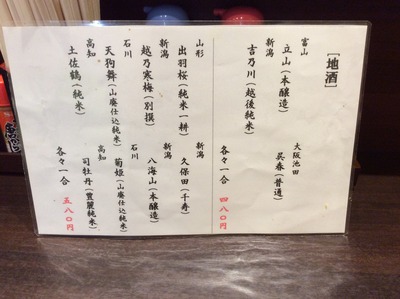 [地酒]
富山
立山(本醸造)
大阪池田
呉春(普通)
新潟
吉乃川(越後純米)
各々一合 四八〇円
山形
出羽桜(純米一耕)
新潟
久保田(千寿)
新潟
越乃寒梅(別撰)
新潟
八海山(本醸造)
石川
天狗舞(山廃仕込純米)
石川
菊姫(山廃仕込純米)
高知
土佐鶴(純米)
高知
司牡丹(豊麗純米)
各々一合 五八〇円